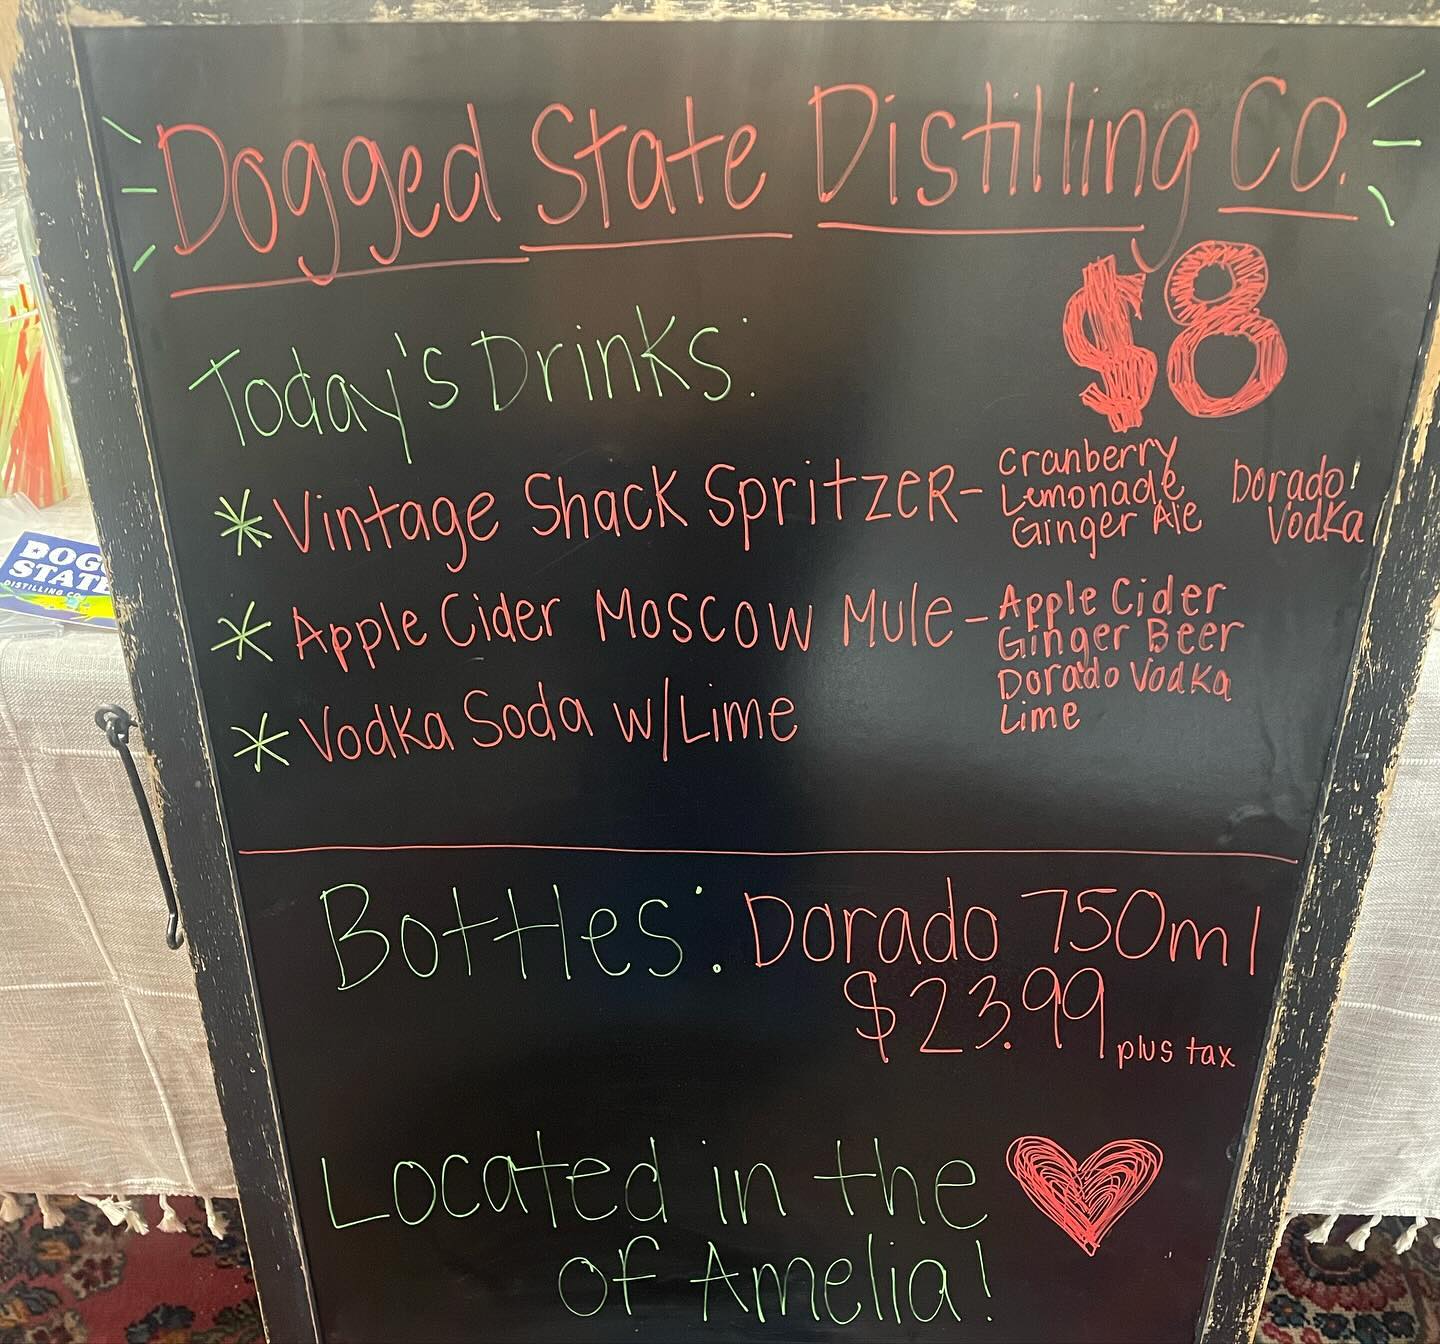 Dogged State Distilling Co.
$8
Today's Drinks:
* Vintage Shack SpritzER- Cranberry
Lemonade
Ginger Ale
Dorado!
Vodka
* Apple Cider Moscow Mule - Apple Cider
Ginger Beer
Dorado Vodka
Lime
* Vodka Soda w/Lime
Bottles: Dorado 750ml
$23.99 plus tax
Located in the
of Amelia!
DOG
STATE
DISTILLING CO